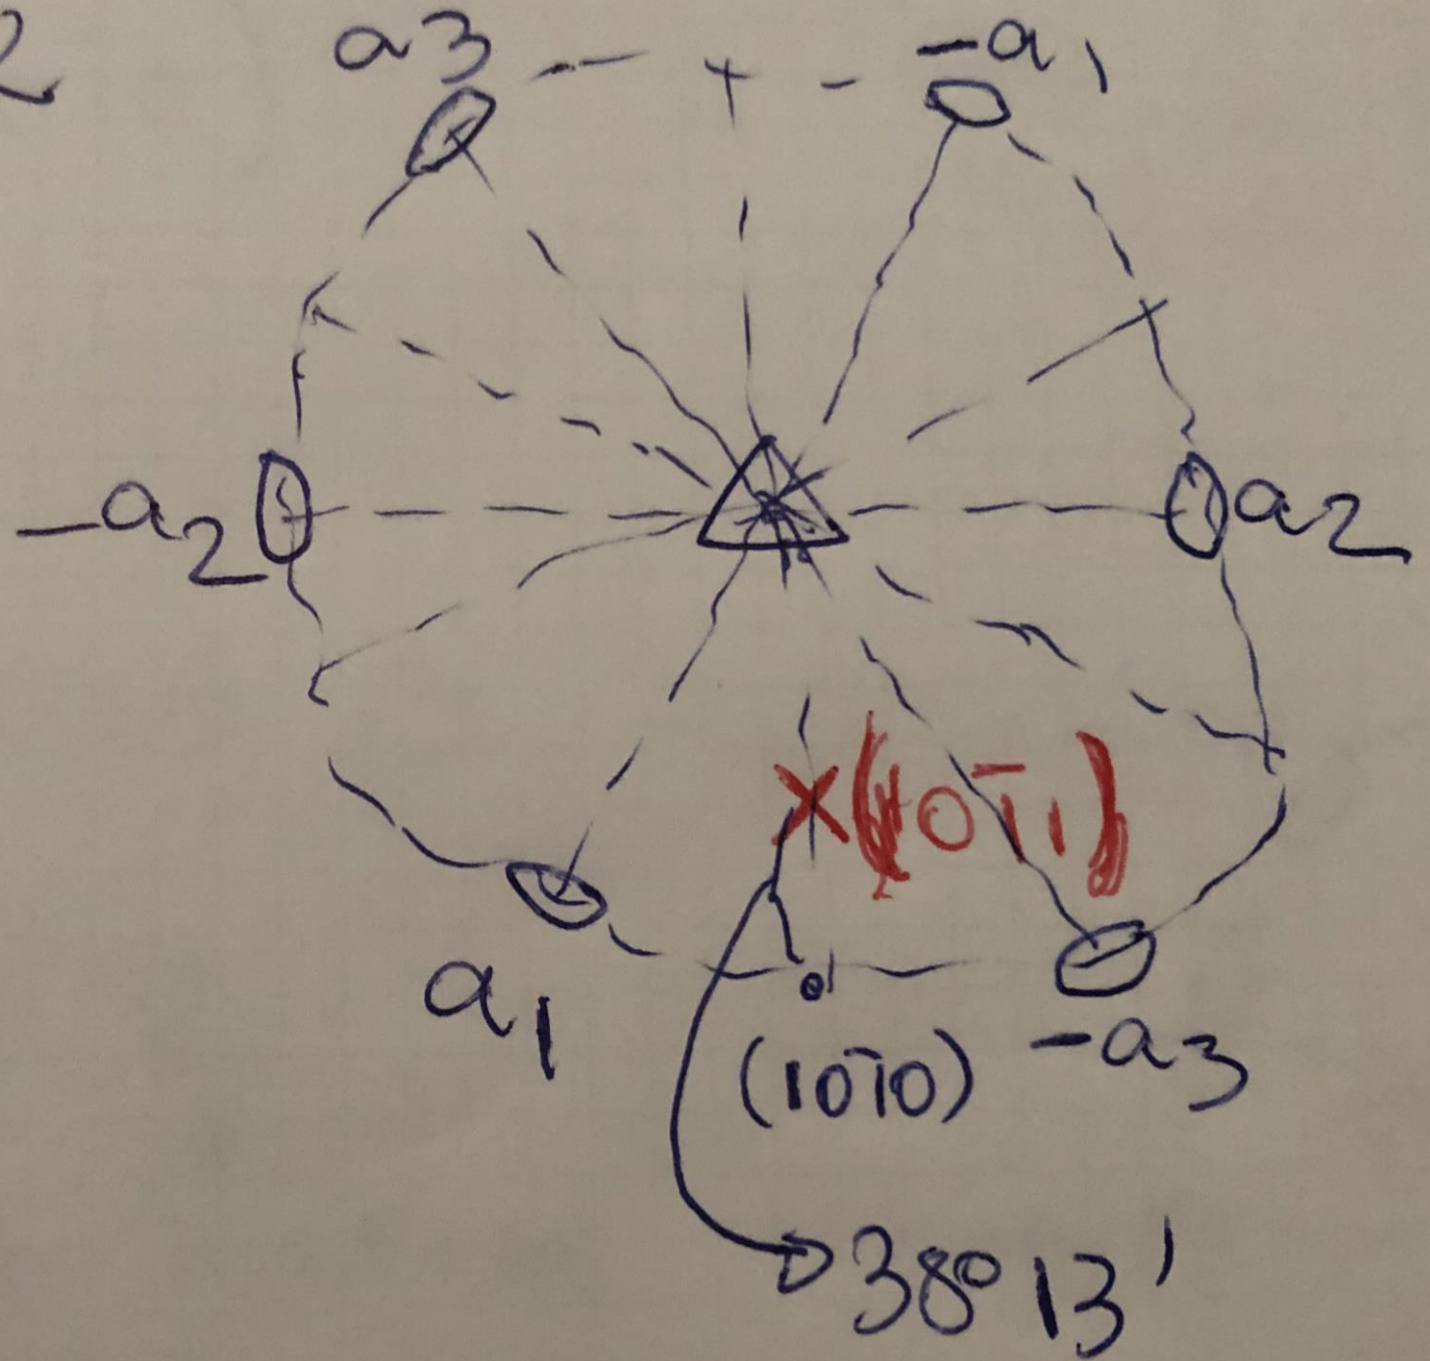 2
a3 -a1
-a2 a2
(10̄11)
a1
(10̄10) -a3
38° 13'